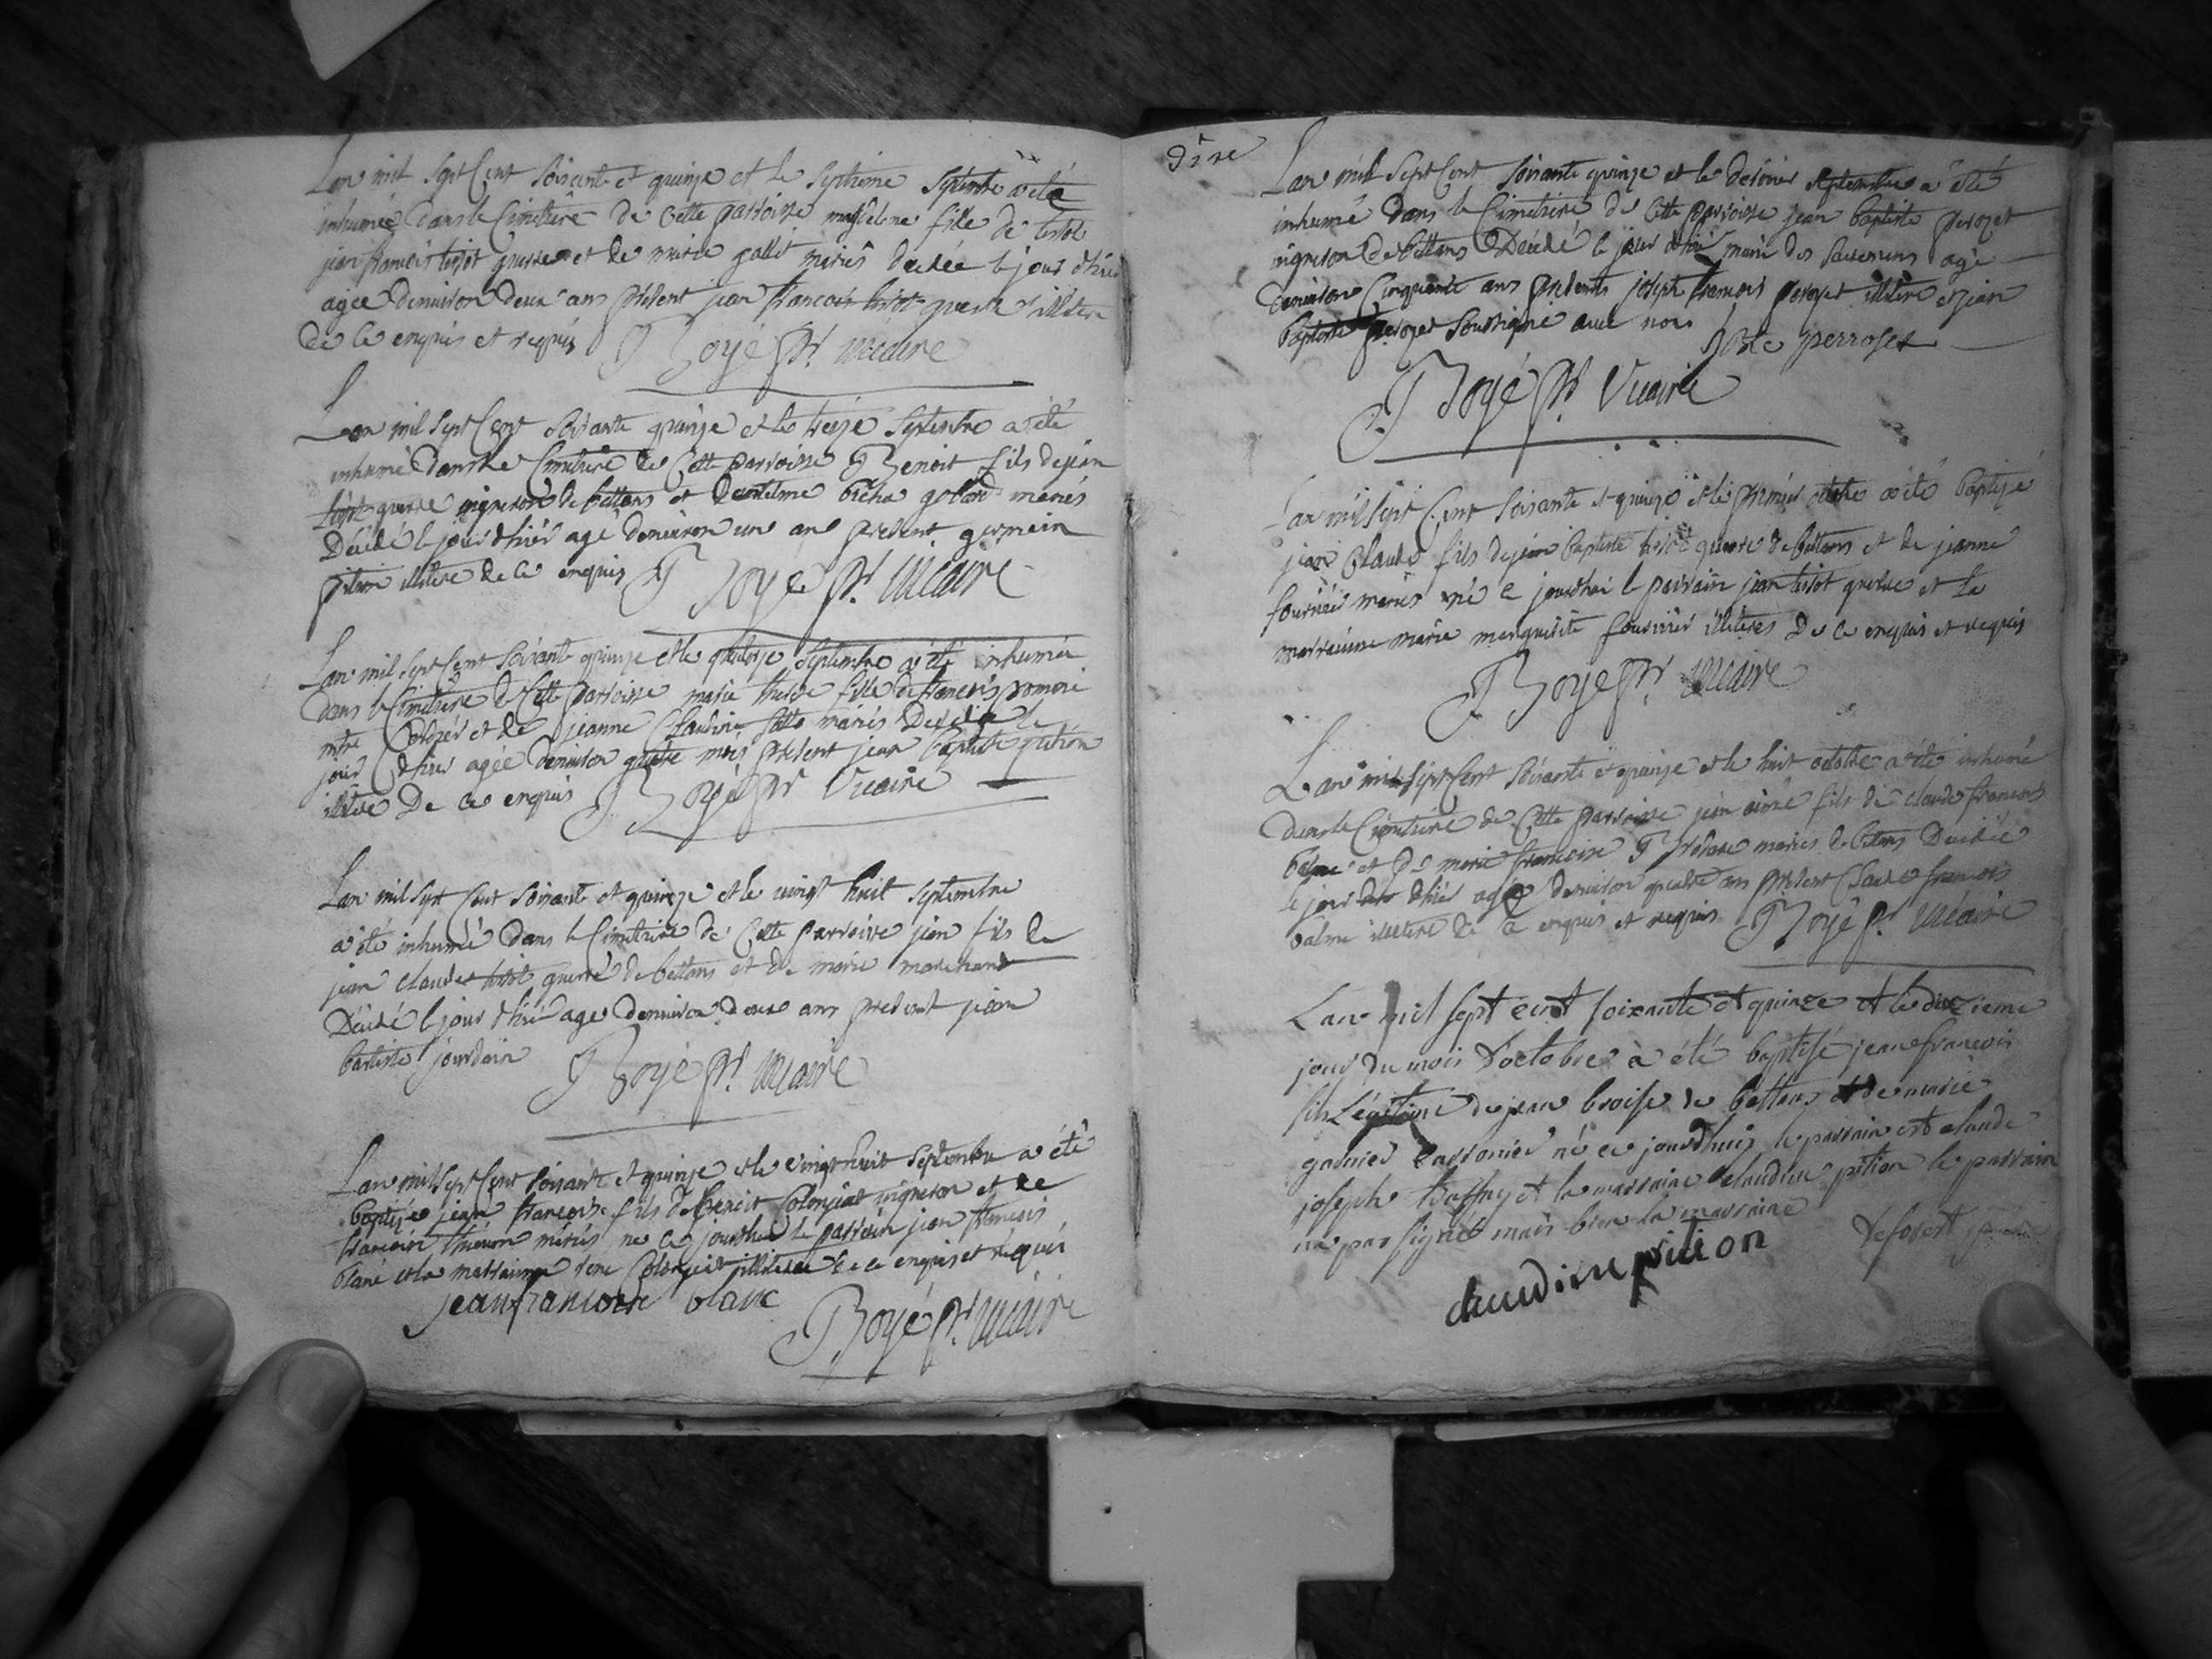 Lan mil Sept Cent Soixante et quinze et le Septieme Septembre a été
inhumée dans le Cimetiere de Cette parroisse magdelene fille de
jean francois tissot guerre et de marie gallet mariés decédée le jour d'hier
agée denviron deux ans présent jean francois tissot guerre illitere
de ce enquis et requis Boyé ptre vicaire
Lan mil Sept Cent Soixante quinze et le treize Septembre a été
inhumé dans le Cimetiere de Cette parroisse Benoit fils de jean
tissot guerre vigneron de bettans et mariés
Décédé le jour d'hier agé denviron un an présent germain
pition illitere de ce enquis Boyé ptre vicaire
Lan mil Sept Cent Soixante quinze et le quatorze Septembre a été inhumée
dans le Cimetiere de Cette parroisse marie fille de francois
mtre et de jeanne Claudine mariés Décédée le
jour d'hier agée denviron quatre mois présent jean baptiste pition
illitere De ce enquis Boyé ptre Vicaire
Lan mil Sept Cent Soixante et quinze et le vingt huit Septembre
a été inhumé dans le Cimetiere de Cette parroisse jean fils de
jean claude tissot guerre de bettans et de marie marchand
Décédé le jour d'hier agé denviron deux ans présent jean
baptiste jourdain Boyé ptre vicaire
Lan mil Sept Cent Soixante et quinze et le vingt huit Septembre a été
baptizé jean francois fils de Benoit vigneron et de
francoise mariés né ce jourdhui le parrain jean francois
blanc et la marraine illitere de ce enquis et requis
jean francois blanc Boyé ptre vicaire
Lan mil Sept Cent Soixante quinze et le dernier Septembre a été
inhumé dans le Cimetiere de Cette parroisse jean baptiste perozet
vigneron de bettans Décédé le jour d'hier muni des Sacremens agé
denviron Cinquante ans présents joseph francois perozet illitere et jean
baptiste perozet Soussigné avec nous jbte perroset
Boyé ptre Vicaire
Lan mil Sept Cent Soixante et quinze et le premier octobre a été baptizé
jean Claude fils de jean baptiste tissot guerre de bettans et de jeanne
fournier mariés né ce jourdhui le parrain jean tissot guerre et la
marraine marie marguerite fournier illiteres De ce enquis et requis
Boyé ptre vicaire
Lan mil Sept Cent Soixante et quinze et le huit octobre a été inhumé
dans le Cimetiere de Cette parroisse jean aimé fils de claude francois
balme et De marie francoise mariés de bettans Décédé
le jour d'hier agé denviron quatre ans présent Claude francois
balme illitere de ce enquis et requis Boyé ptre vicaire
Lan mil sept cent soixante et quinze et le dixieme
jour du mois d'octobre à été baptisé jean francois
fils Légitime de jean broise de bettans et de marie
garnier né ce jourdhuy le parrain est claude
joseph et la marraine claudine pition le parrain
na pas signé mais bien la marraine Deforest
claudine pition